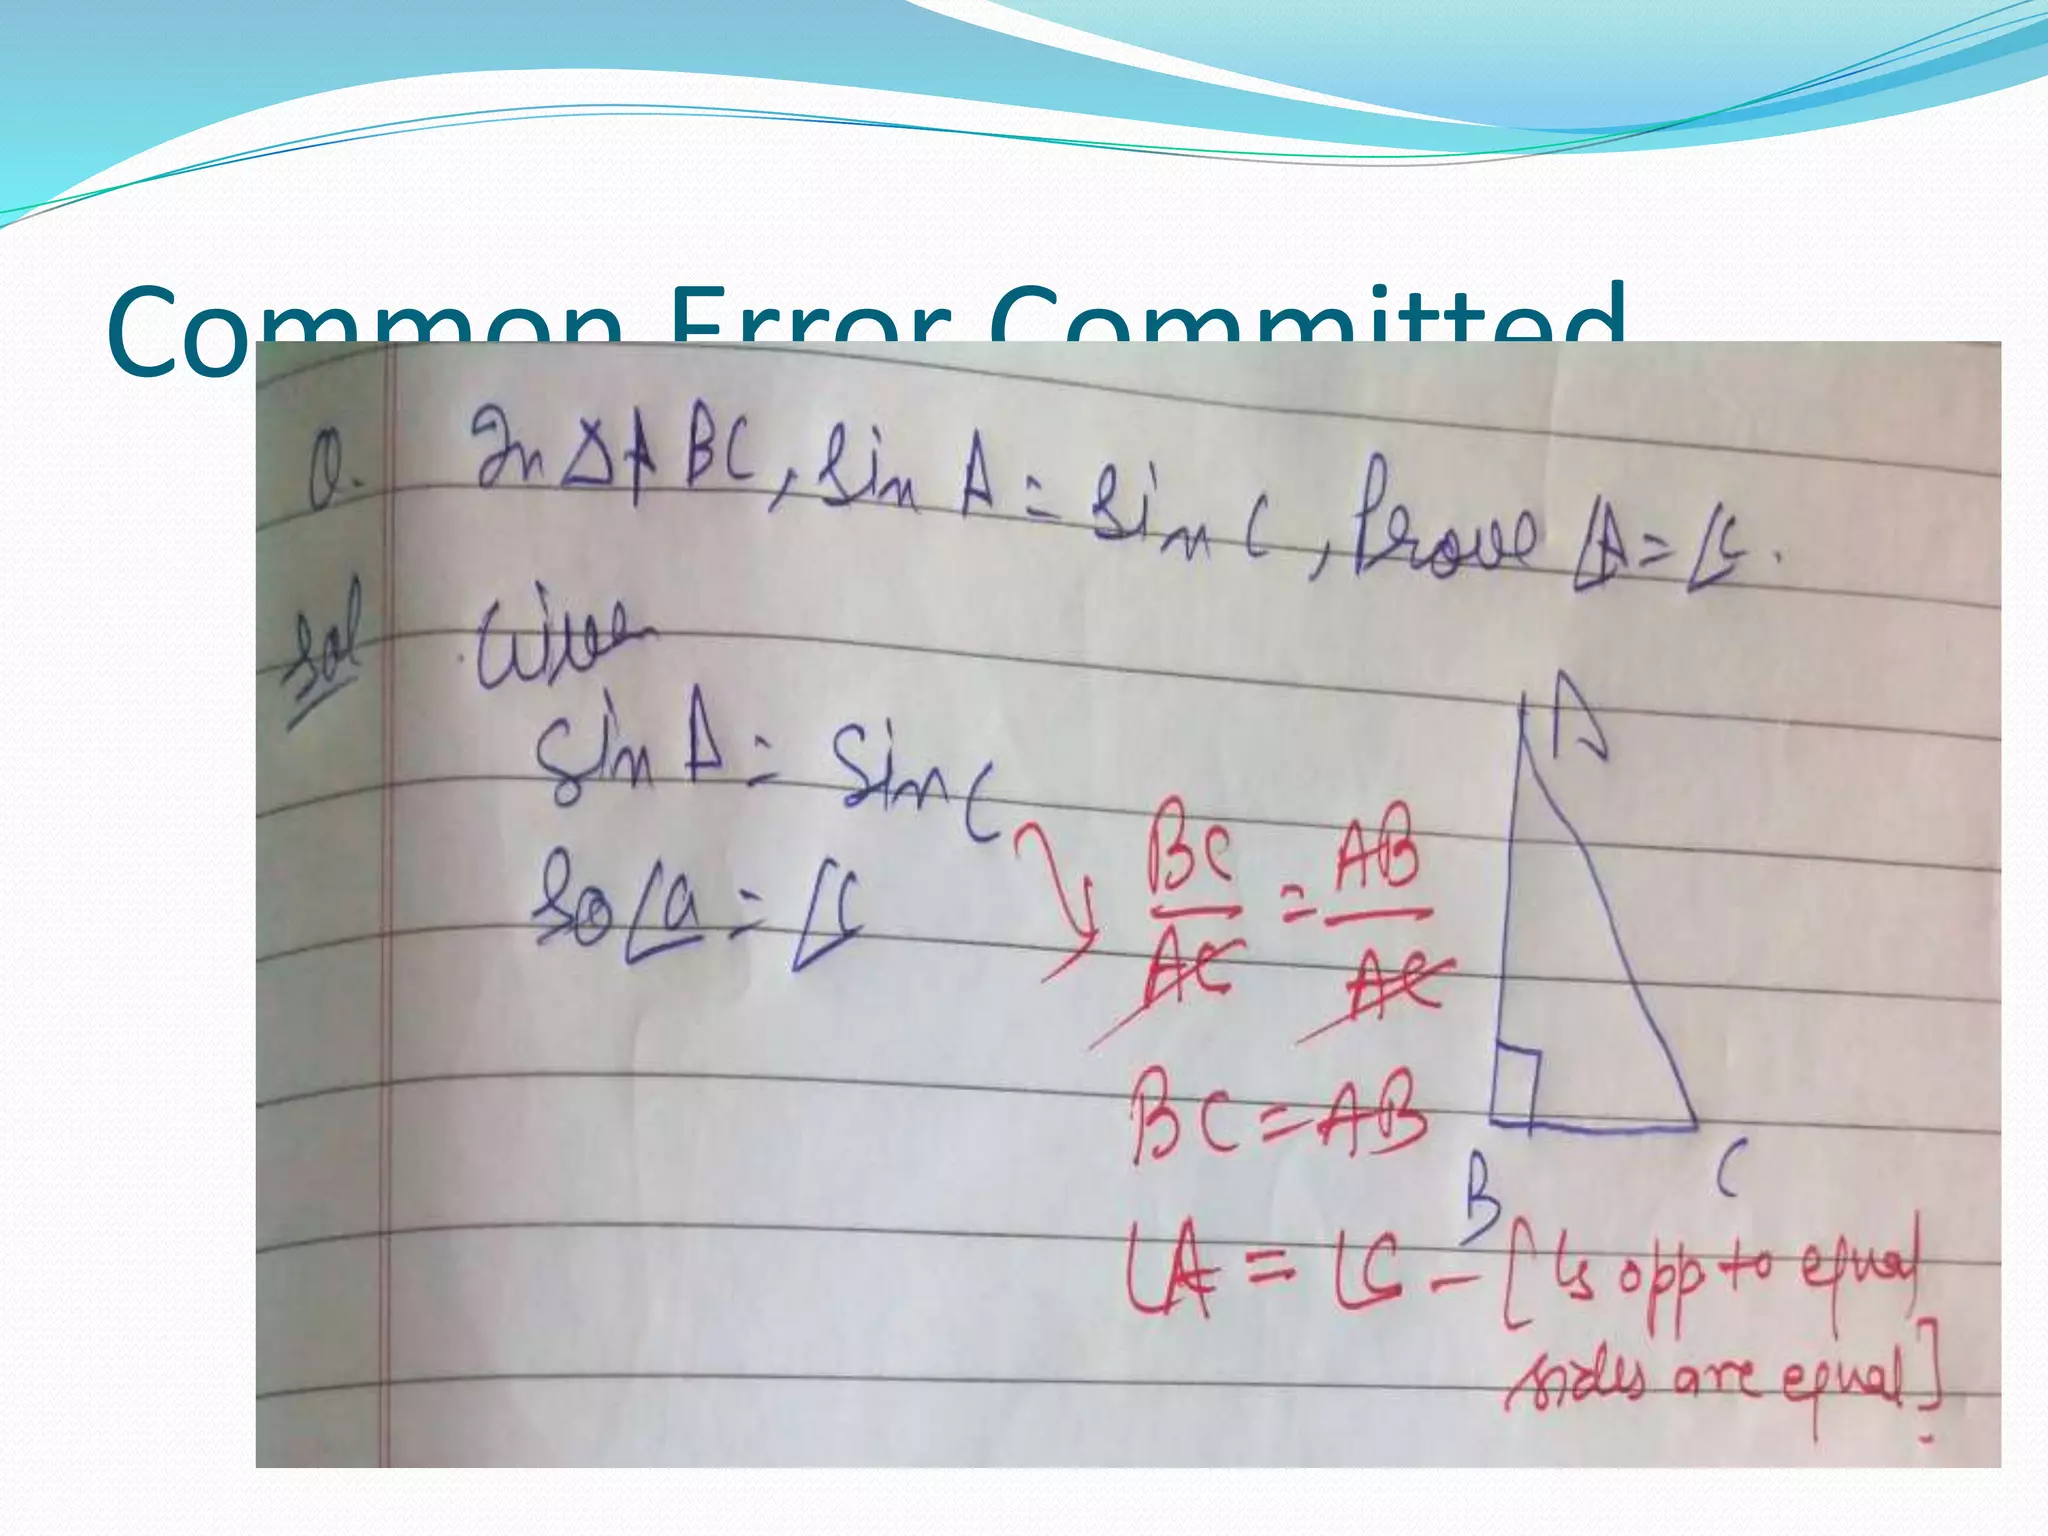 Common Error Committed
Q. In ΔABC, Sin A = Sin C, Prove ∠A = ∠C.
Sol Given
Sin A = Sin C
So ∠a = ∠C
BC/AC = AB/AC
BC = AB
∠A = ∠C - [∠s opp to equal
sides are equal]
A
B
C